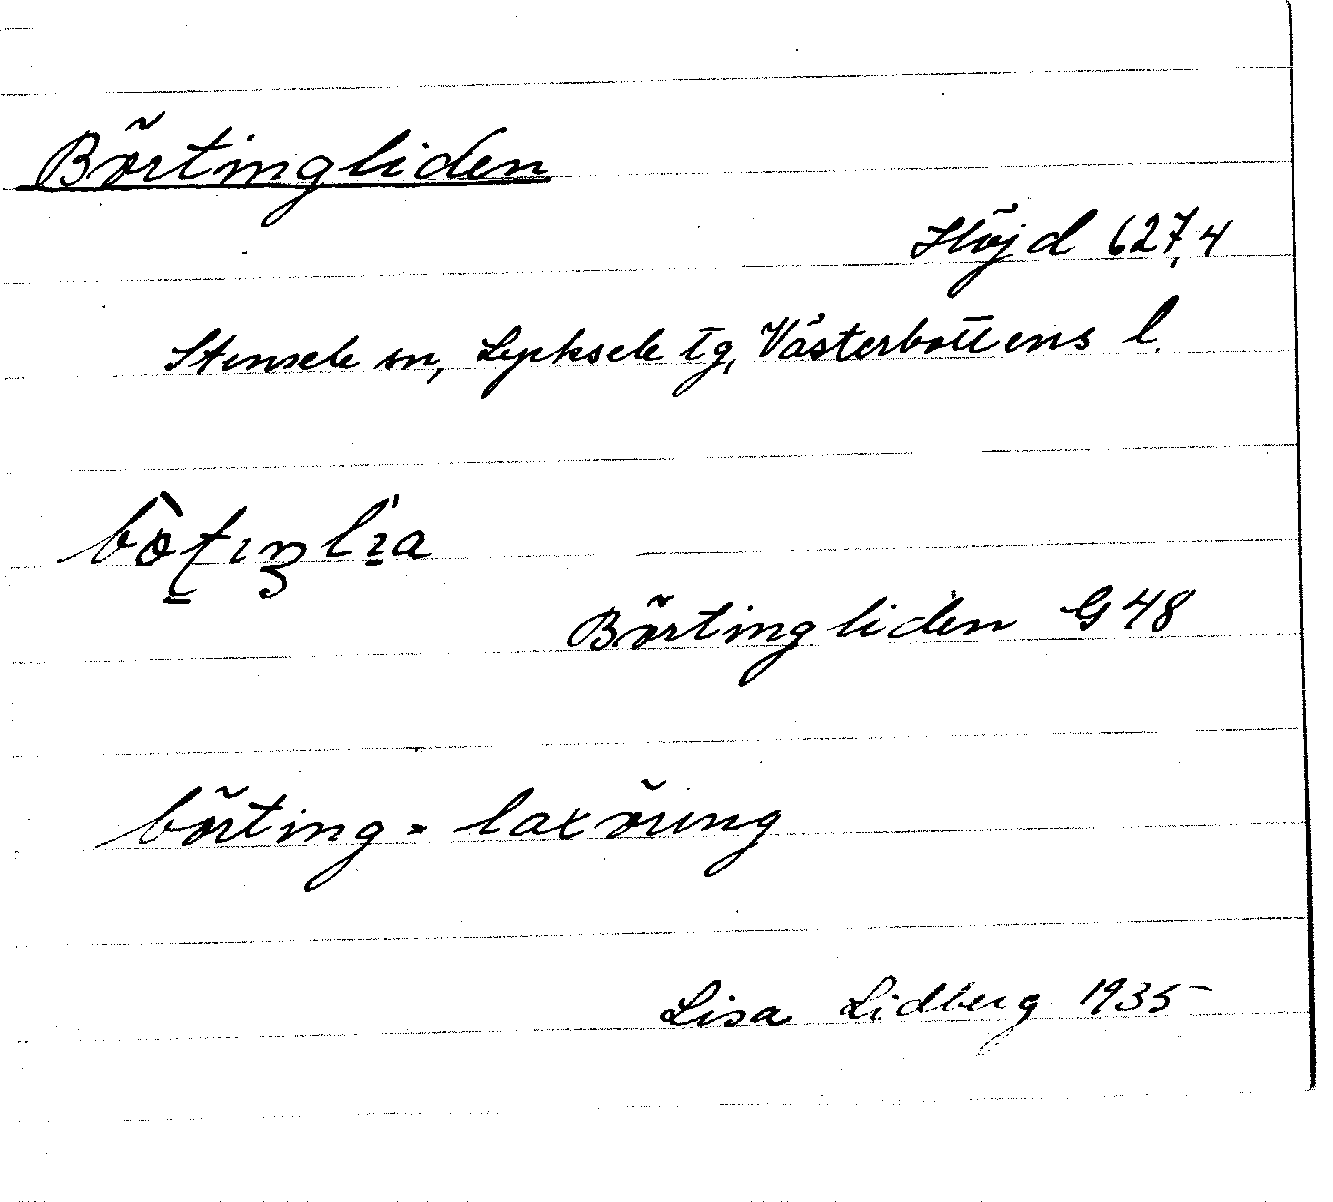 Börtingliden
Höjd 627,4
Stensele sn, Lycksele tg, Västerbottens l.
Börtingliden G 48
börting = laxöring
Lisa Lidberg 1935